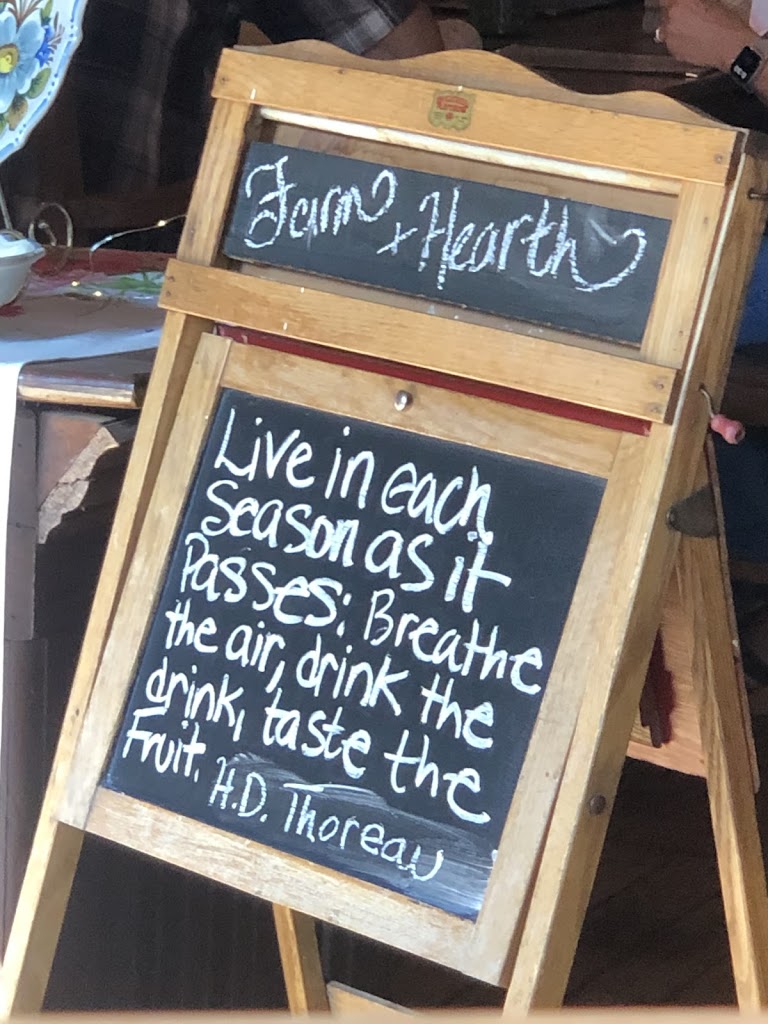 Farm + Hearth
Live in each
season as it
Passes: Breathe
the air, drink the
drink, taste the
Fruit.
H.D. Thoreau